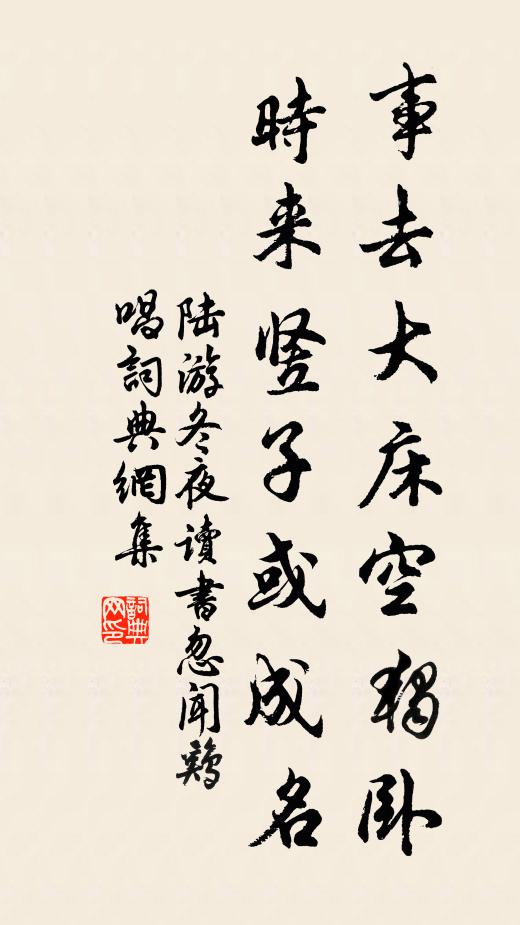 事去大床空獨卧
時来竖子或成名
陆游冬夜讀書忽闻鷄
唱詞典網集
詞典
网印